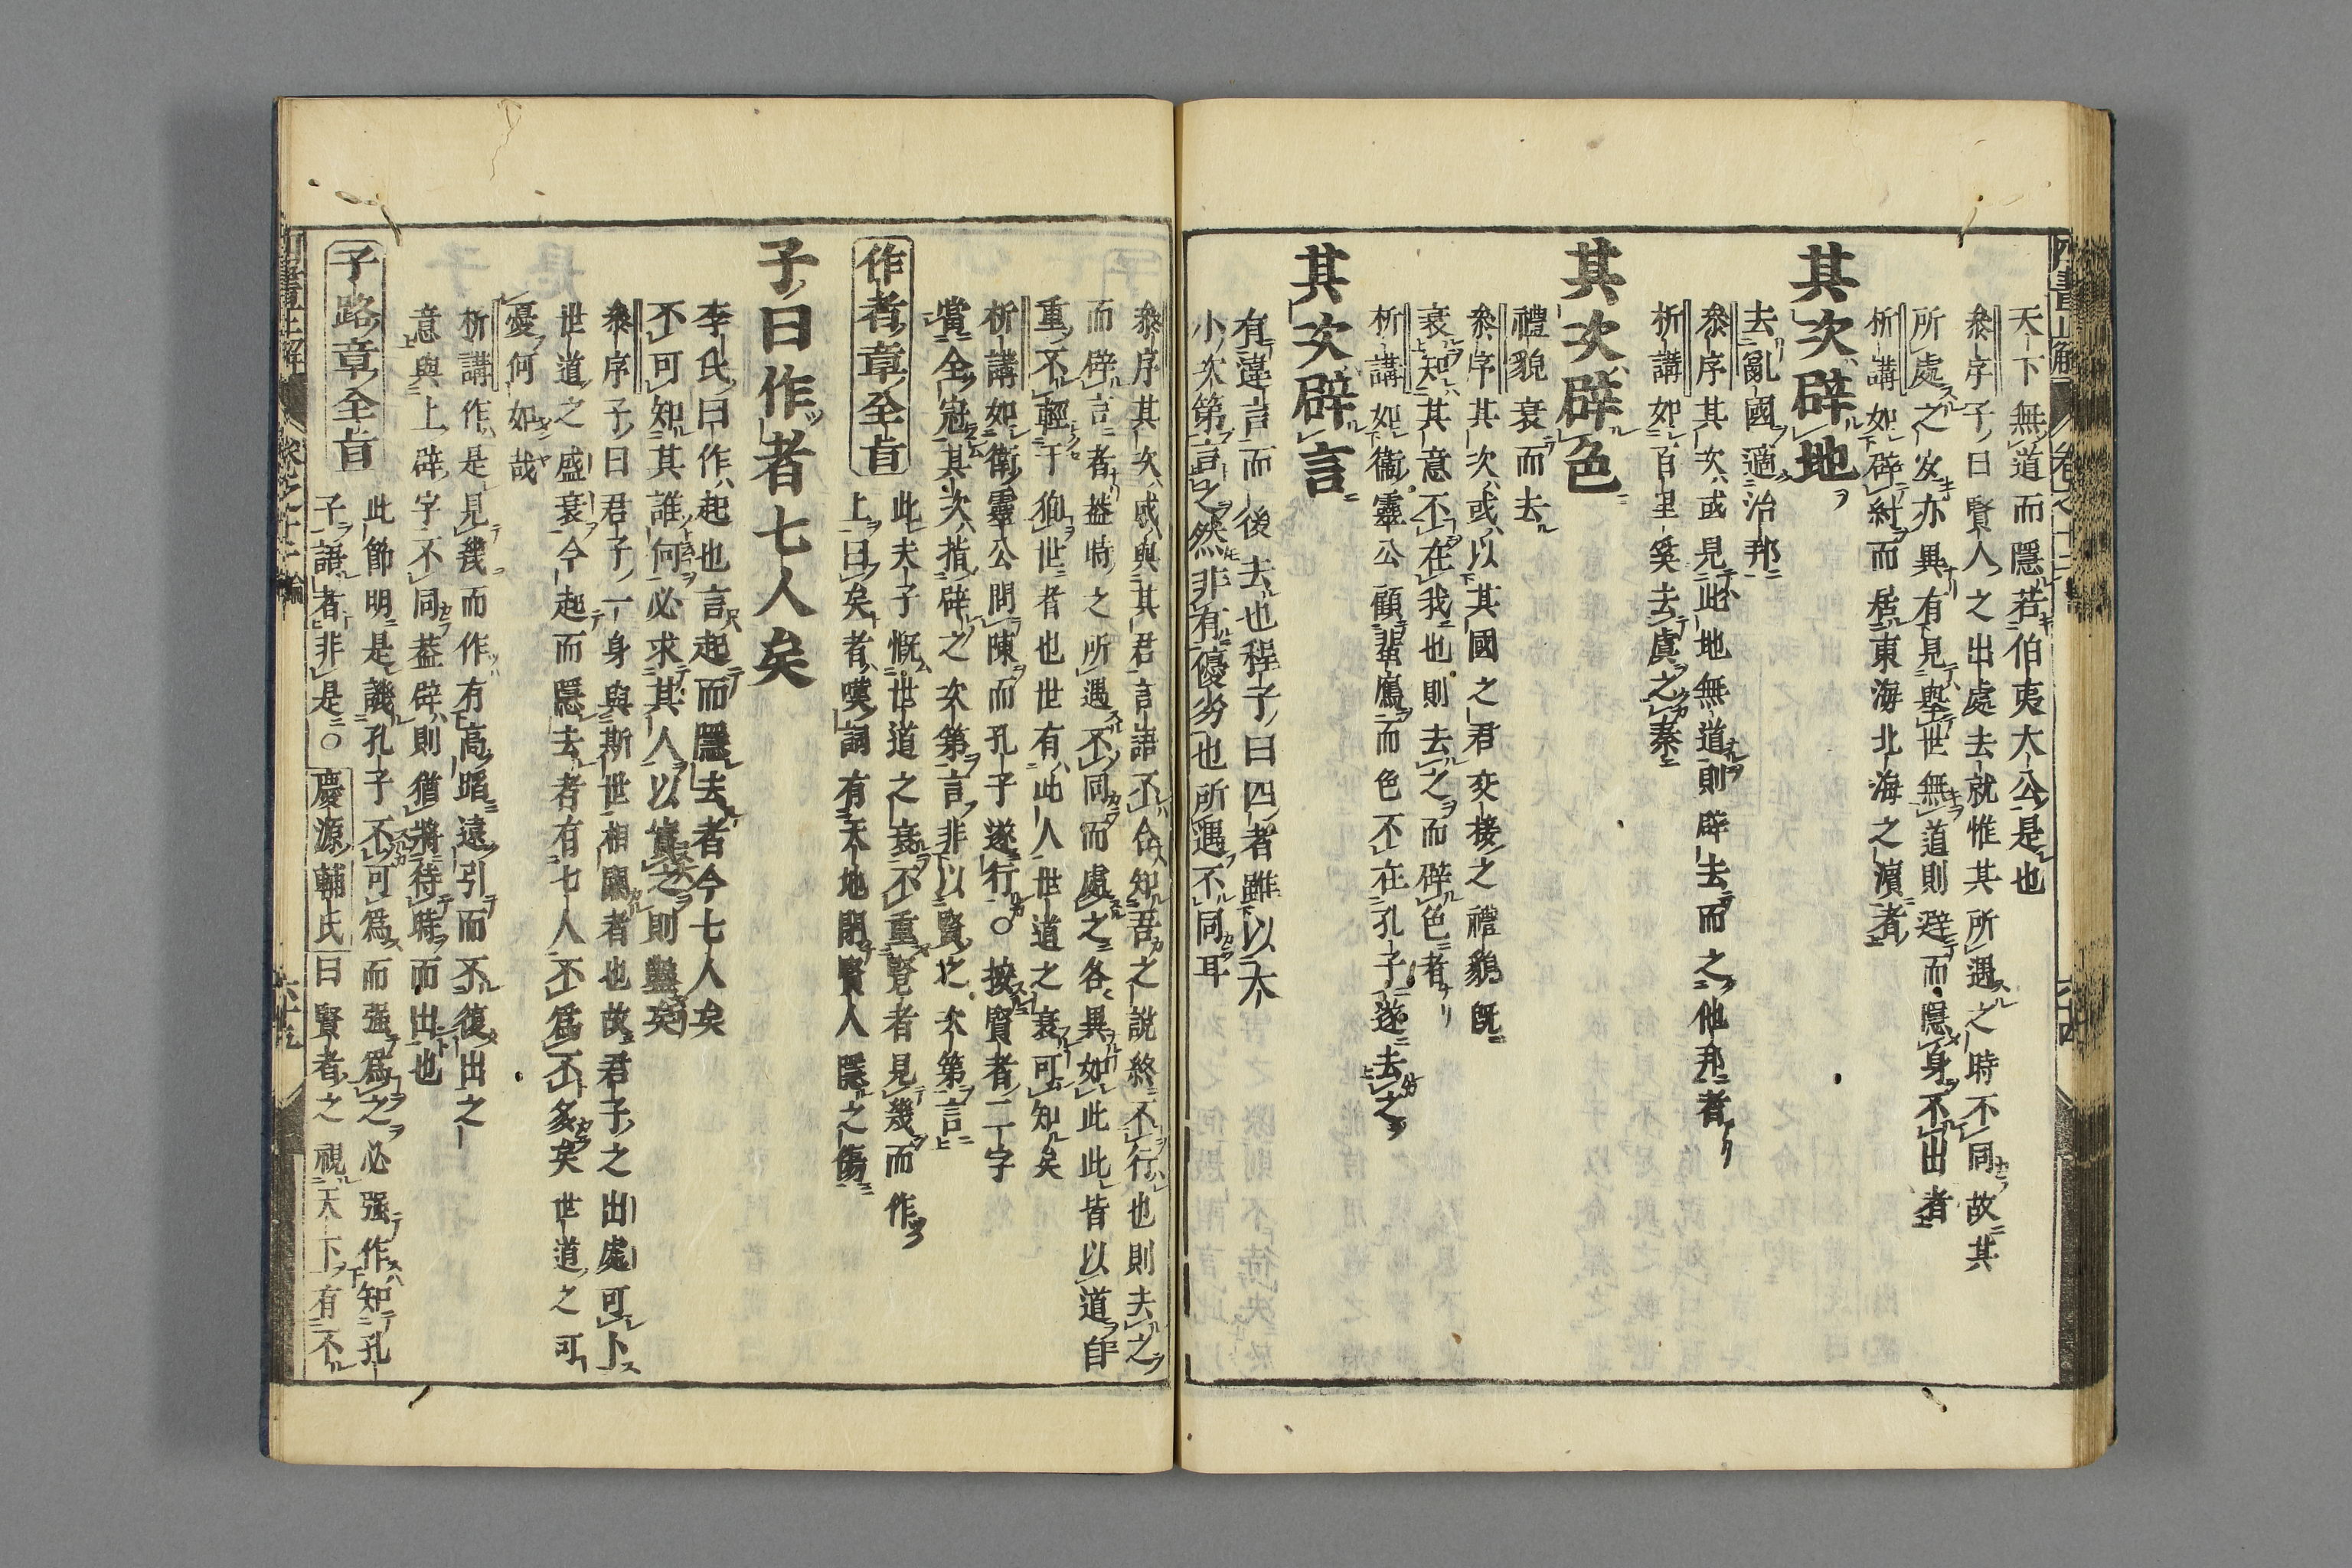 天下無道而隱若伯夷大公是也
叅序子曰賢人之出處去就惟其所遇之時不同故其
所處之次亦異有見擧世無道則避而隱身不出者
析講如辟紂而居東海北海之濱者
其次辟地
去亂國適治邦
叅序其次或見此地無道則辟去而之他邦者
析講如百里奚去虞之秦
其次辟色
禮貌衰而去
叅序其次或以其國之君交接之禮貌旣
衰知其意不在我也則去之而辟色者
析講如衞靈公顧蜚鴈而色不在孔子遂去之
其次辟言
有違言而後去也程子曰四者雖以大
小次第言之然非有優劣也所遇不同耳
叅序其次或與其君言語不合知吾之說終不行也則去之
而辟言者葢時之所遇不同而處之各異如此此皆以道自
重不輕于狥世者也世有此人世道之衰可知矣
析講如衛靈公問陳而孔子遂行○按賢者二字
當全冠其次指辟之次第言非以賢之次第言
作者章全旨
此夫子慨世道之衰不重覽者見幾而作
上曰矣者嘆詞有天地閉賢人隱之傷
子曰作者七人矣
李氏曰作起也言起而隱去者今七人矣
不可知其誰何必求其人以實之則鑿矣
叅序子曰君子一身與斯世相關者也故君子之出處可卜
世道之盛衰今起而隱去者有七人不爲不多矣世道之可
憂何如哉
析講作是見幾而作有高蹈遠引而不復出之
意與上辟字不同葢辟則猶將待時而出也
子路章全旨
此節明是譏孔子不可爲而强爲之必强作知孔
子語者非是○慶源輔氏曰賢者之視天下有不